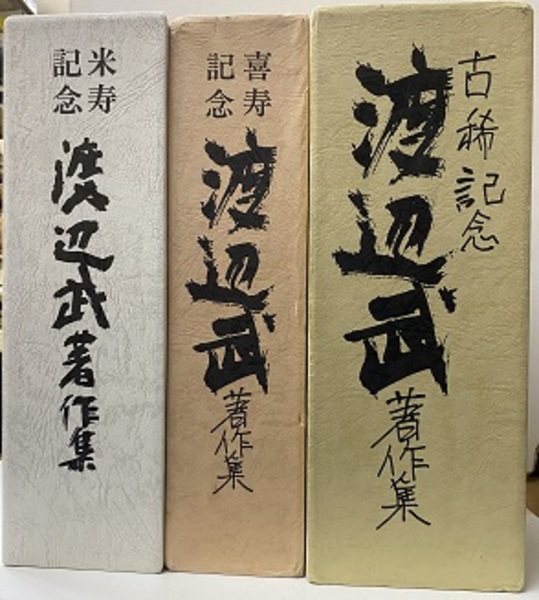 古稀記念
渡辺武
著作集
喜寿
記念
渡辺武
著作集
米寿
記念
渡辺武著作集